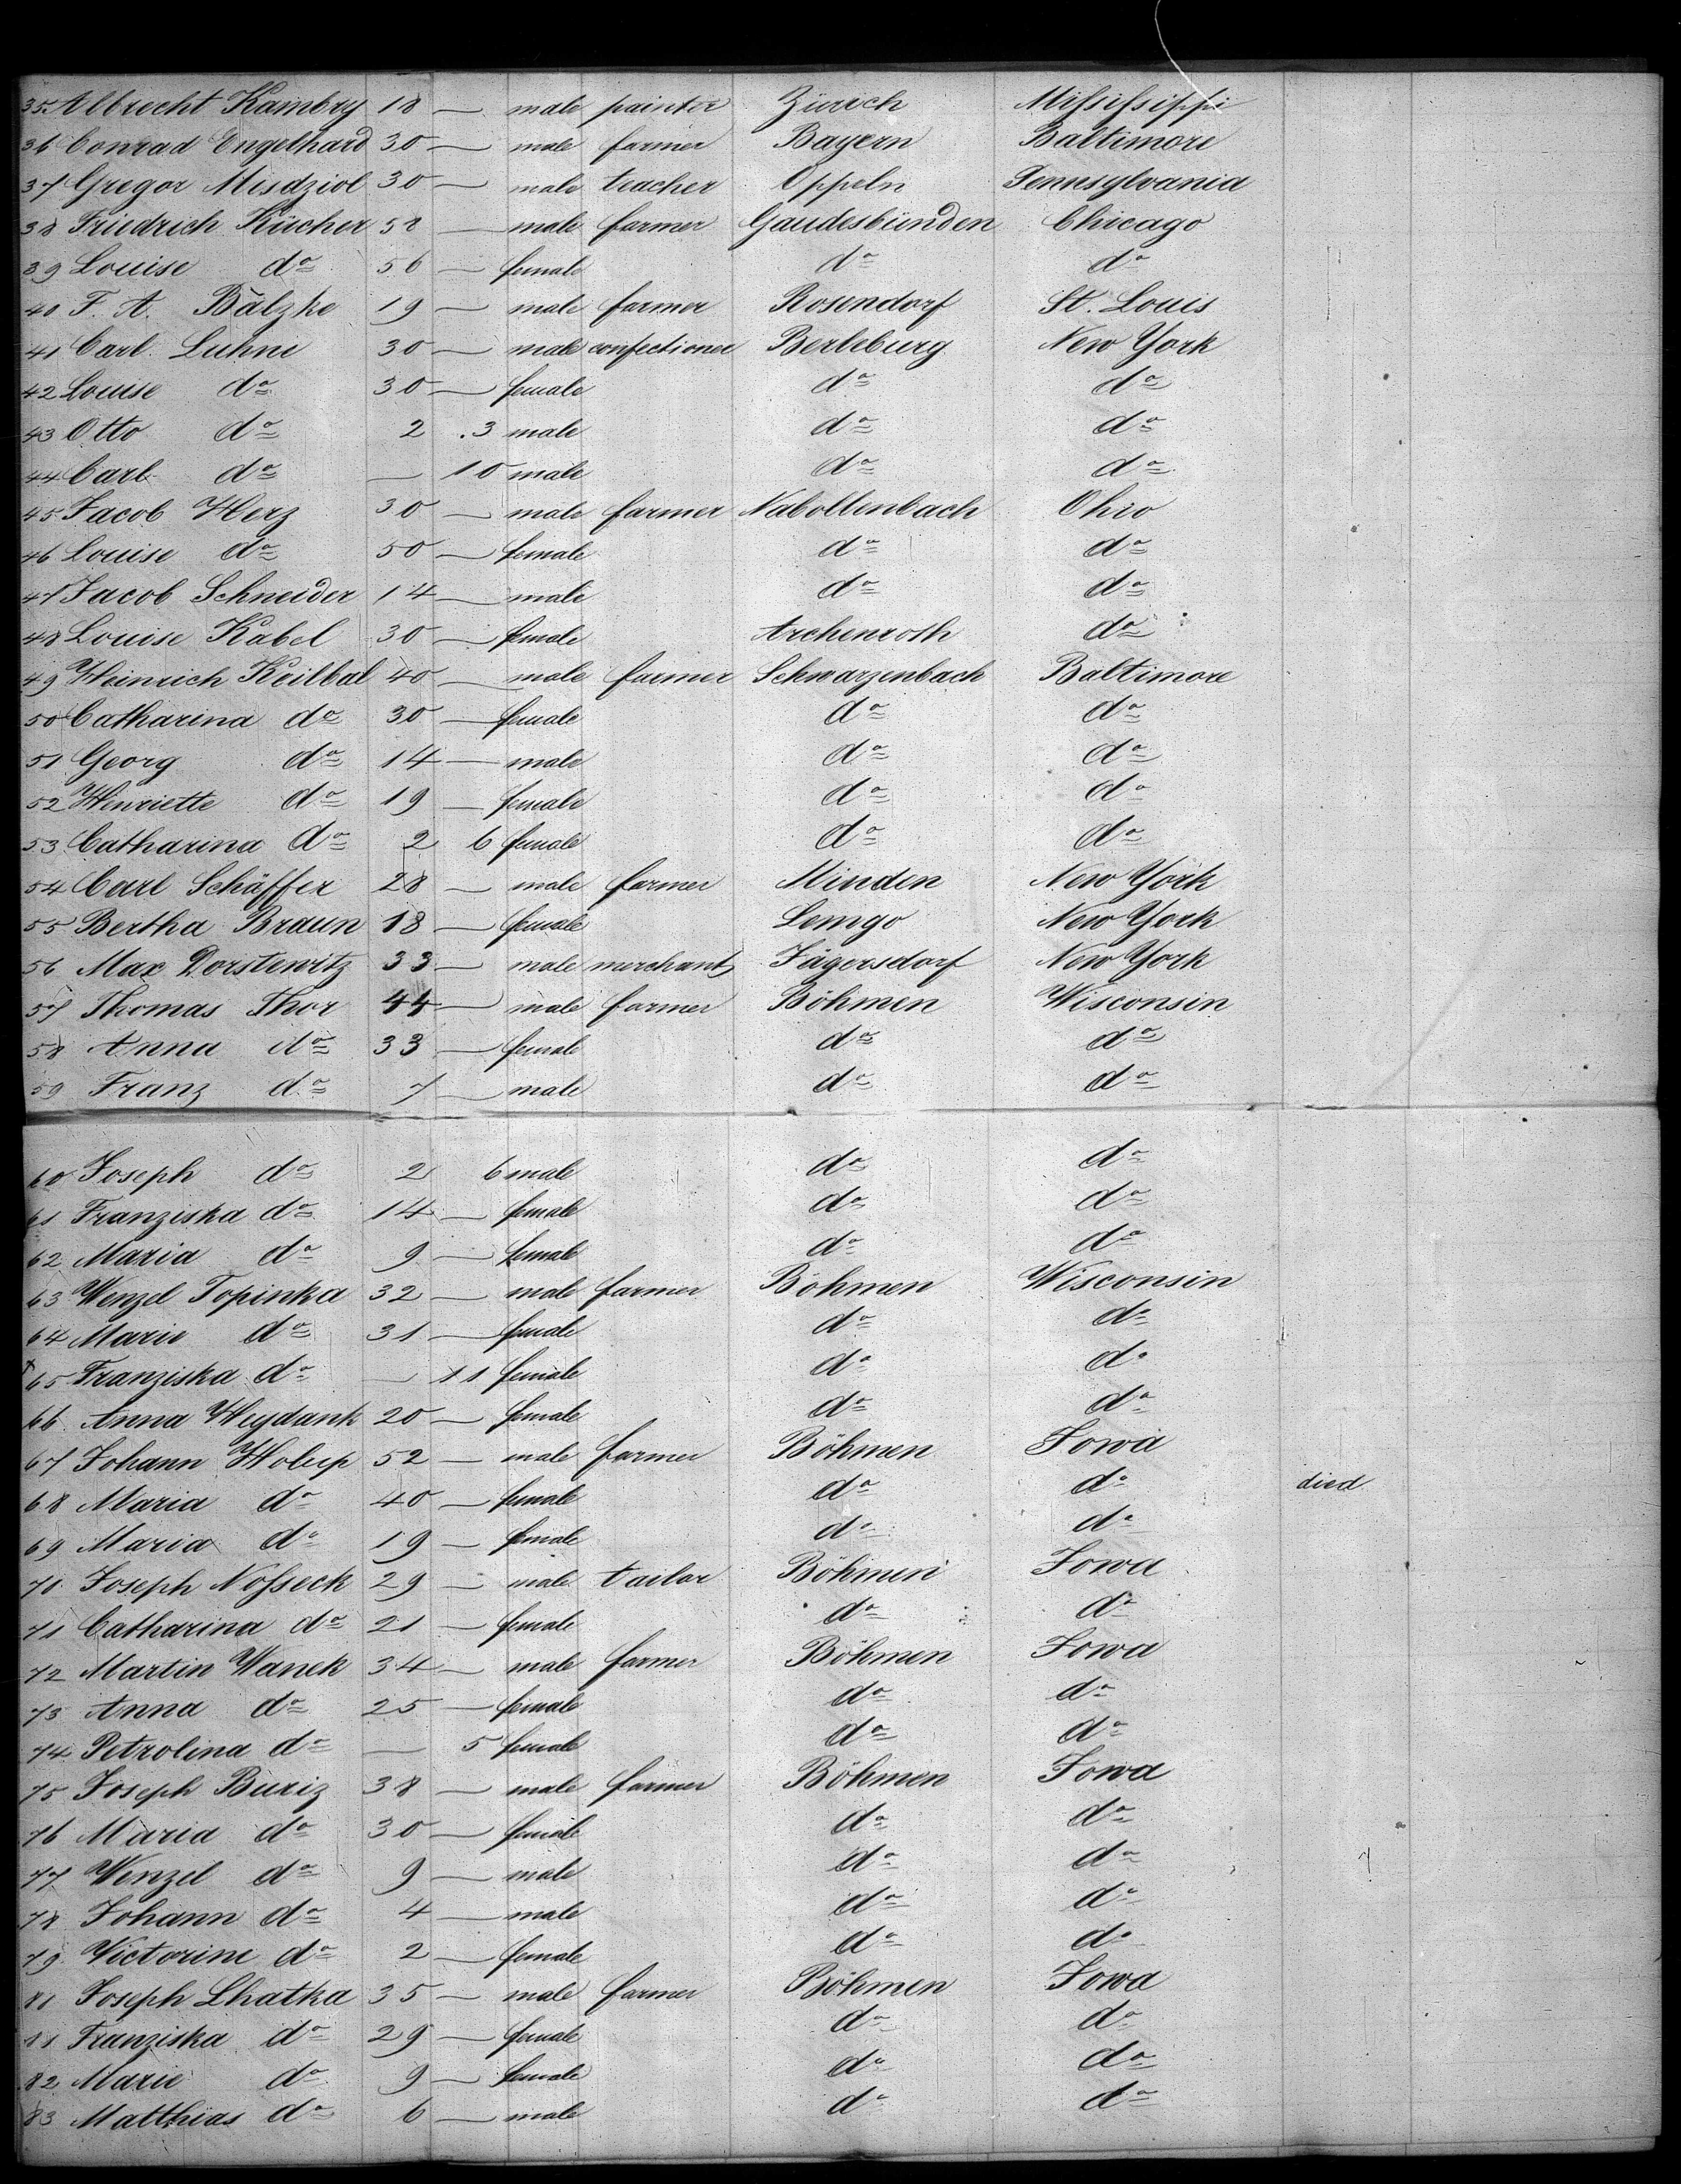 35 Albrecht Kambry 18 — male painter Zürich Mifsifsippi
36 Conrad Engelhard 30 — male farmer Bayern Baltimore
37 Gregor Misdziol 30 — male teacher Oppeln Pennsylvania
38 Friedrich Kücher 58 — male farmer Gaudesbünden Chicago
39 Louise do 56 — female do do
40 F. A. Bälzke 19 — male farmer Rosendorf St. Louis
41 Carl Luhne 30 — male confectioner Berleburg New York
42 Louise do 30 — female do do
43 Otto do 2 .3 male do do
44 Carl do — 10 male do do
45 Jacob Herz 30 — male farmer Nabollenbach Ohio
46 Louise do 50 — female do do
47 Jacob Schneider 14 — male do do
48 Louise Kabel 30 — female Archenroth do
49 Heinrich Keilbal 40 — male farmer Schwarzenbach Baltimore
50 Catharina do 30 — female do do
51 Georg do 14 — male do do
52 Henriette do 19 — female do do
53 Catharina do 2 6 female do do
54 Carl Schäffer 28 — male farmer Minden New York
55 Bertha Braun 18 — female Lemgo New York
56 Max Dorstewitz 33 — male merchant Jägersdorf New York
57 Thomas Thor 44 — male farmer Böhmen Wisconsin
58 Anna do 33 — female do do
59 Franz do 7 — male do do
60 Joseph do 2 6 male do do
61 Franziska do 14 — female do do
62 Maria do 9 — female do do
63 Wenzel Topinka 32 — male farmer Böhmen Wisconsin
64 Marie do 31 — female do do
65 Franziska do — 11 female do do
66 Anna Weydank 20 — female do do
67 Johann Holup 52 — male farmer Böhmen Iowa
68 Maria do 40 — female do do died
69 Maria do 19 — female do do
70 Joseph Nofseck 29 — male tailor Böhmen Iowa
71 Catharina do 21 — female do do
72 Martin Wanek 34 — male farmer Böhmen Iowa
73 Anna do 25 — female do do
74 Petrolina do — 5 female do do
75 Joseph Buriz 38 — male farmer Böhmen Iowa
76 Maria do 30 — female do do
77 Wenzel do 9 — male do do
78 Johann do 4 — male do do
79 Victorine do 2 — female do do
81 Joseph Lhatka 35 — male farmer Böhmen Iowa
81 Franziska do 29 — female do do
82 Marie do 9 — female do do
83 Matthias do 6 — male do do